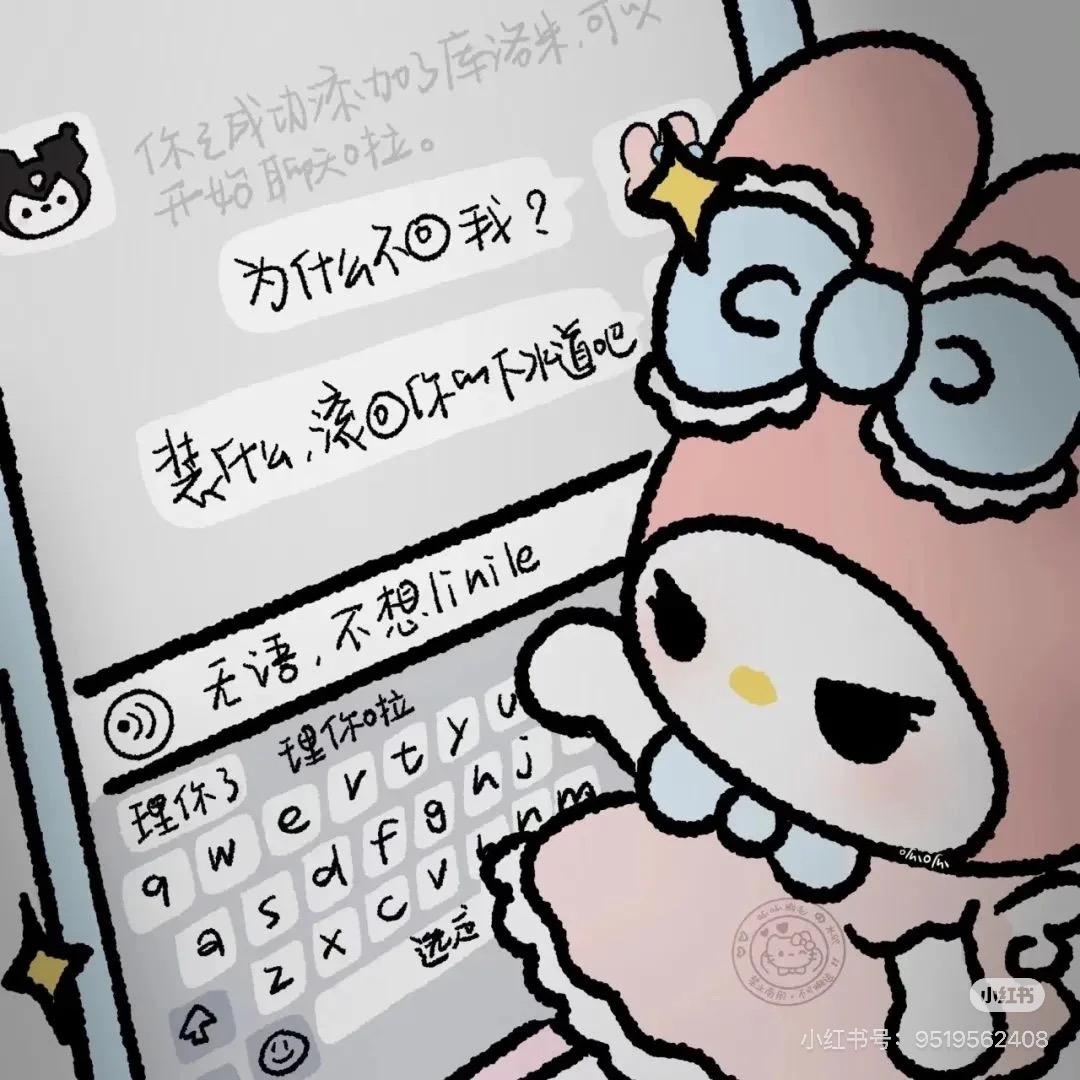 你已成功添加了库洛米,可以
开始聊天啦。
为什么不回我?
装什么,滚回你的下水道吧
无语,不想linile
理你了 理你啦
q w e r t y u
a s d f g h j
z x c v b n m
选定
小红书
小红书号:9519562408